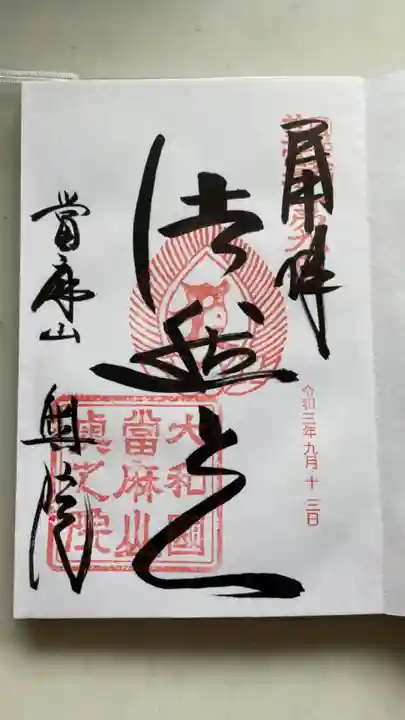 奉拝
令和三年九月十三日
法然上人
大和國
當麻山
奥之院
當麻山 奥院